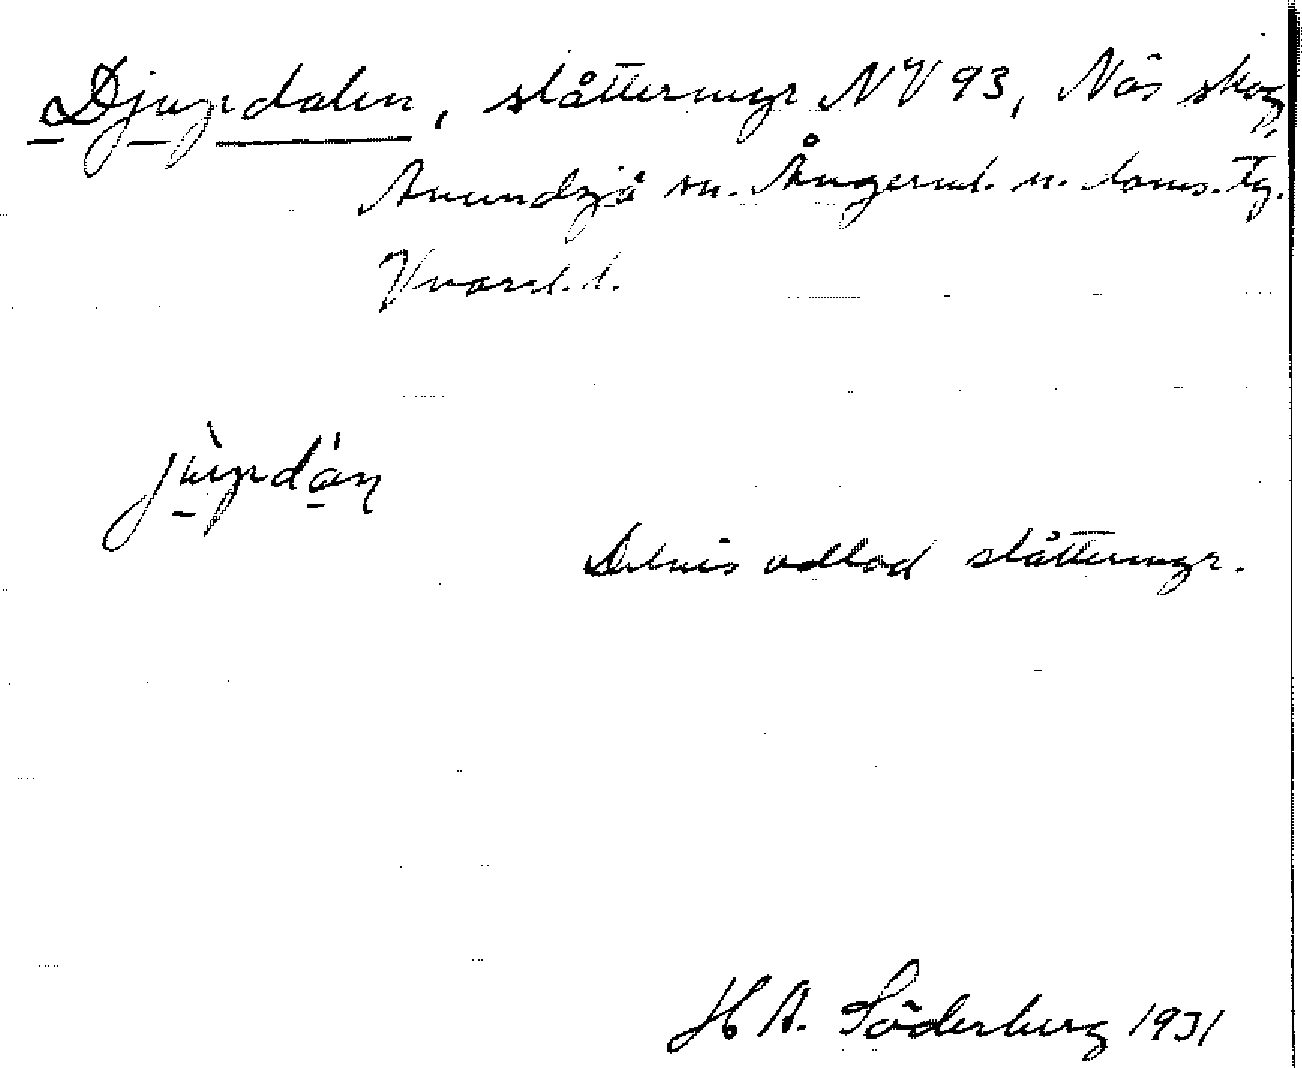 Djupdalen, slåttermyr NV 93, Näs skog,
Anundsjö sn. Ångerml. n. doms. tg.
V norrl. l.
jùpdáṇ
Delvis odlad slåttermyr.
H A. Söderberg 1931